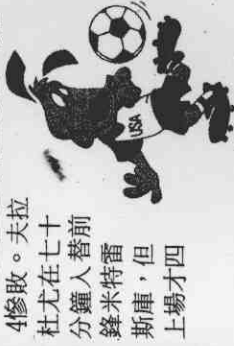 4慘敗。夫拉
杜尤在七十
分鐘入替前
鋒米特雷
斯庫，但
上場才四
USA